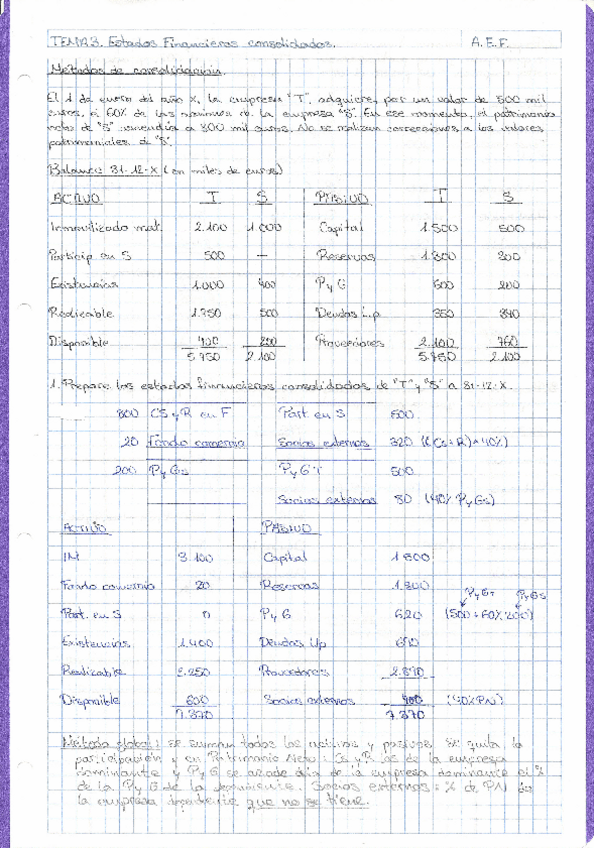 TEMA 3. Estados Financieros consolidados. A.E.F.
Métodos de consolidación.
El 1 de enero del año X, la empresa "T" adquiere, por un valor de 500 mil
euros, el 60% de las acciones de la empresa "S". En ese momento, el patrimonio
neto de "S" ascendía a 800 mil euros. No se realizan correcciones a los valores
patrimoniales de "S".
Balance 31-12-X (en miles de euros)
ACTIVO T S PASIVO T S
Inmovilizado mat. 2.100 1.000 Capital 1.500 500
Particip en S 500 — Reservas 1.300 300
Existencias 1.000 400 PyG 500 200
Realizable 1.750 500 Deudas L.p 350 340
Disponible 400 200 Proveedores 2.100 760
5.750 2.100 5.750 2.100
1. Prepare los estados financieros consolidados de "T" y "S" a 31-12-X.
800 CS y R en F Part en S 500
20 Fondo comercio Socios externos 320 ((Cs+R)*40%)
200 PyGs PyGT 500
Socios externos 80 (40% PyGs)
ACTIVO PASIVO
IM 3.100 Capital 1.500
Fondo comercio 20 Reservas 1.300
PyGT PyGs
Part. en S 0 PyG 620 (500+60%200)
Existencias 1.400 Deudas l/p 690
Realizable 2.250 Proveedores 2.870
Disponible 600 Socios externos 400 (40%PN)
7.370 7.370
Método global: se suman todos los activos y pasivos. Se quita la
participación y en Patrimonio Neto: Cs y R las de la empresa
dominante y PyG se añade a la de la empresa dominante el %
de la PyG de la dependiente. Socios externos: % de PN de
la empresa dependiente que no se tiene.